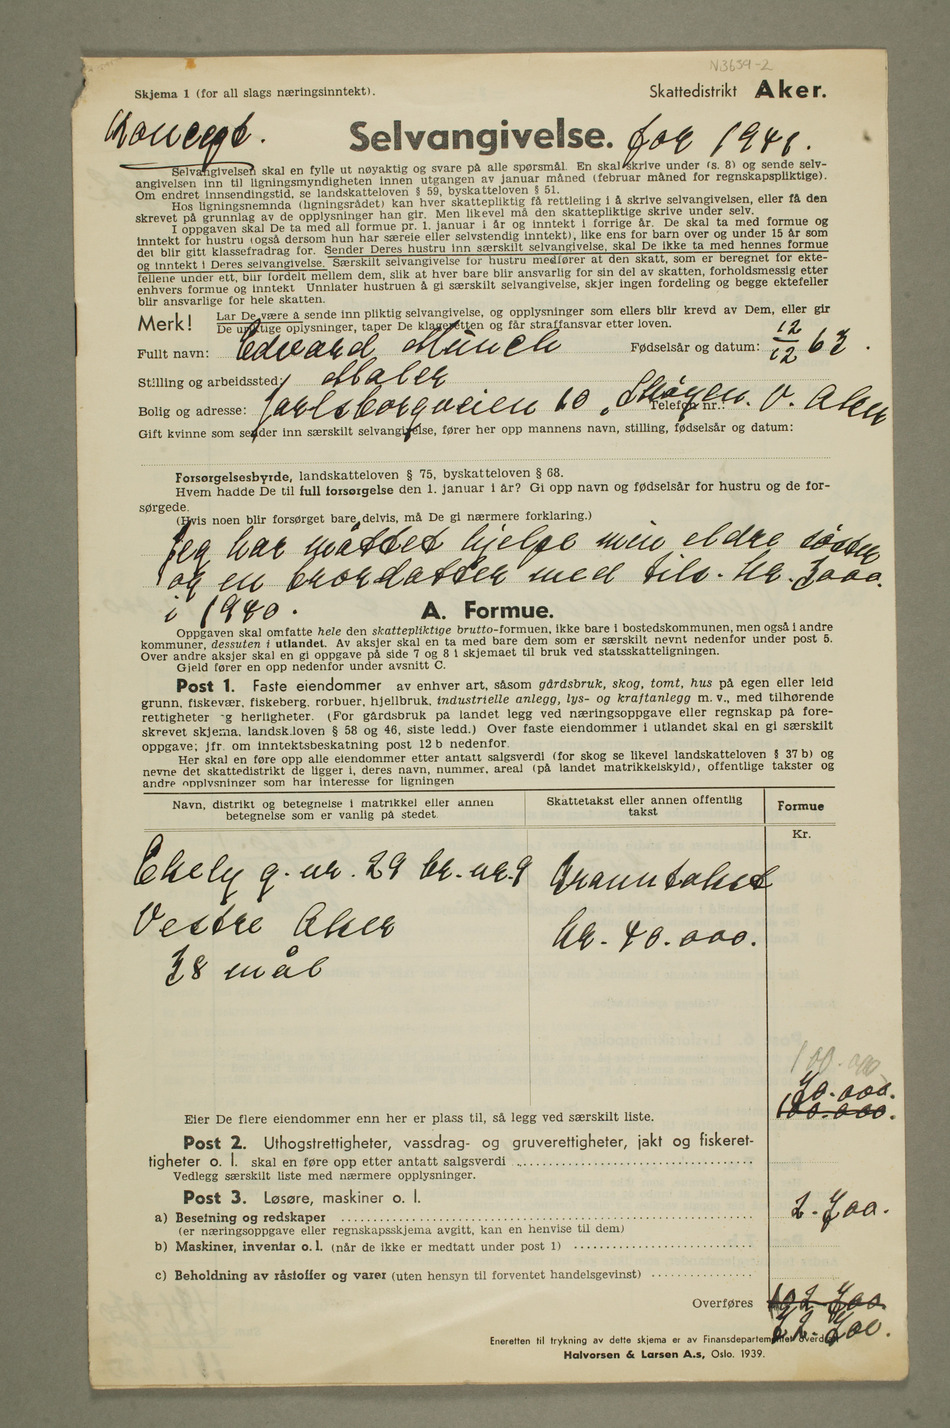 N3659-2
Skjema 1 (for all slags næringsinntekt).
Skattedistrikt Aker.
Koncept.
Selvangivelse. for 1941.
Selvangivelsen skal en fylle ut nøyaktig og svare på alle spørsmål. En skal skrive under (s. 8) og sende selv-
angivelsen inn til ligningsmyndigheten innen utgangen av januar måned (februar måned for regnskapspliktige).
Om endret innsendingstid, se landskatteloven § 59, byskatteloven § 51.
Hos ligningsnemnda (ligningsrådet) kan hver skattepliktig få rettleiing i å skrive selvangivelsen, eller få den
skrevet på grunnlag av de opplysninger han gir. Men likevel må den skattepliktige skrive under selv.
I oppgaven skal De ta med all formue pr. 1. januar i år og inntekt i forrige år. De skal ta med formue og
inntekt for hustru (også dersom hun har særeie eller selvstendig inntekt), like ens for barn over og under 15 år som
det blir gitt klassefradrag for. Sender Deres hustru inn særskilt selvangivelse, skal De ikke ta med hennes formue
og inntekt i Deres selvangivelse. Særskilt selvangivelse for hustru medfører at den skatt, som er beregnet for ekte-
fellene under ett, blir fordelt mellem dem, slik at hver bare blir ansvarlig for sin del av skatten, forholdsmessig etter
enhvers formue og inntekt Unnlater hustruen å gi særskilt selvangivelse, skjer ingen fordeling og begge ektefeller
blir ansvarlige for hele skatten.
Merk! Lar De være å sende inn pliktig selvangivelse, og opplysninger som ellers blir krevd av Dem, eller gir
De uriktige oplysninger, taper De klageretten og får straffansvar etter loven.
Fullt navn: Edvard Munch Fødselsår og datum: 12/12 63.
Stilling og arbeidssted: Maler
Bolig og adresse: Jarlsborgveien 10, Skøyen. V. Aker
Telefon nr.:
Gift kvinne som sender inn særskilt selvangivelse, fører her opp mannens navn, stilling, fødselsår og datum:
Forsørgelsesbyrde, landskatteloven § 75, byskatteloven § 68.
Hvem hadde De til full forsørgelse den 1. januar i år? Gi opp navn og fødselsår for hustru og de for-
sørgede.
(Hvis noen blir forsørget bare delvis, må De gi nærmere forklaring.)
Jeg har måttet hjelpe min eldre søster
og en brordatter med tils. kr. 3000.
i 1940.
A. Formue.
Oppgaven skal omfatte hele den skattepliktige brutto-formuen, ikke bare i bostedskommunen, men også i andre
kommuner, dessuten i utlandet. Av aksjer skal en ta med bare dem som er særskilt nevnt nedenfor under post 5.
Over andre aksjer skal en gi oppgave på side 7 og 8 i skjemaet til bruk ved statsskatteligningen.
Gjeld fører en opp nedenfor under avsnitt C.
Post 1. Faste eiendommer av enhver art, såsom gårdsbruk, skog, tomt, hus på egen eller leid
grunn, fiskevær, fiskeberg, rorbuer, hjellbruk, industrielle anlegg, lys- og kraftanlegg m. v., med tilhørende
rettigheter og herligheter. (For gårdsbruk på landet legg ved næringsoppgave eller regnskap på fore-
skrevet skjema, landsk.loven § 58 og 46, siste ledd.) Over faste eiendommer i utlandet skal en gi særskilt
oppgave; jfr. om inntektsbeskatning post 12 b nedenfor.
Her skal en føre opp alle eiendommer etter antatt salgsverdi (for skog se likevel landskatteloven § 37 b) og
nevne det skattedistrikt de ligger i, deres navn, nummer, areal (på landet matrikkelskyld), offentlige takster og
andre opplysninger som har interesse for ligningen
Navn, distrikt og betegnelse i matrikkel eller annen
betegnelse som er vanlig på stedet
Skattetakst eller annen offentlig
takst
Formue
Kr.
Ekely g. nr. 29 br. nr. 9 Branntakst
Vestre Aker kr. 40.000.
38 mål
100.000
70.000.
100.000.
Eier De flere eiendommer enn her er plass til, så legg ved særskilt liste.
Post 2. Uthogstrettigheter, vassdrag- og gruverettigheter, jakt og fiskeret-
tigheter o. l. skal en føre opp etter antatt salgsverdi
Vedlegg særskilt liste med nærmere opplysninger.
Post 3. Løsøre, maskiner o. l.
a) Besetning og redskaper 2.700.
(er næringsoppgave eller regnskapsskjema avgitt, kan en henvise til dem)
b) Maskiner, inventar o. l. (når de ikke er medtatt under post 1)
c) Beholdning av råstoffer og varer (uten hensyn til forventet handelsgevinst)
Overføres 102.700
72.700.
Eneretten til trykning av dette skjema er av Finansdepartementet overdratt
Halvorsen & Larsen A.s, Oslo. 1939.